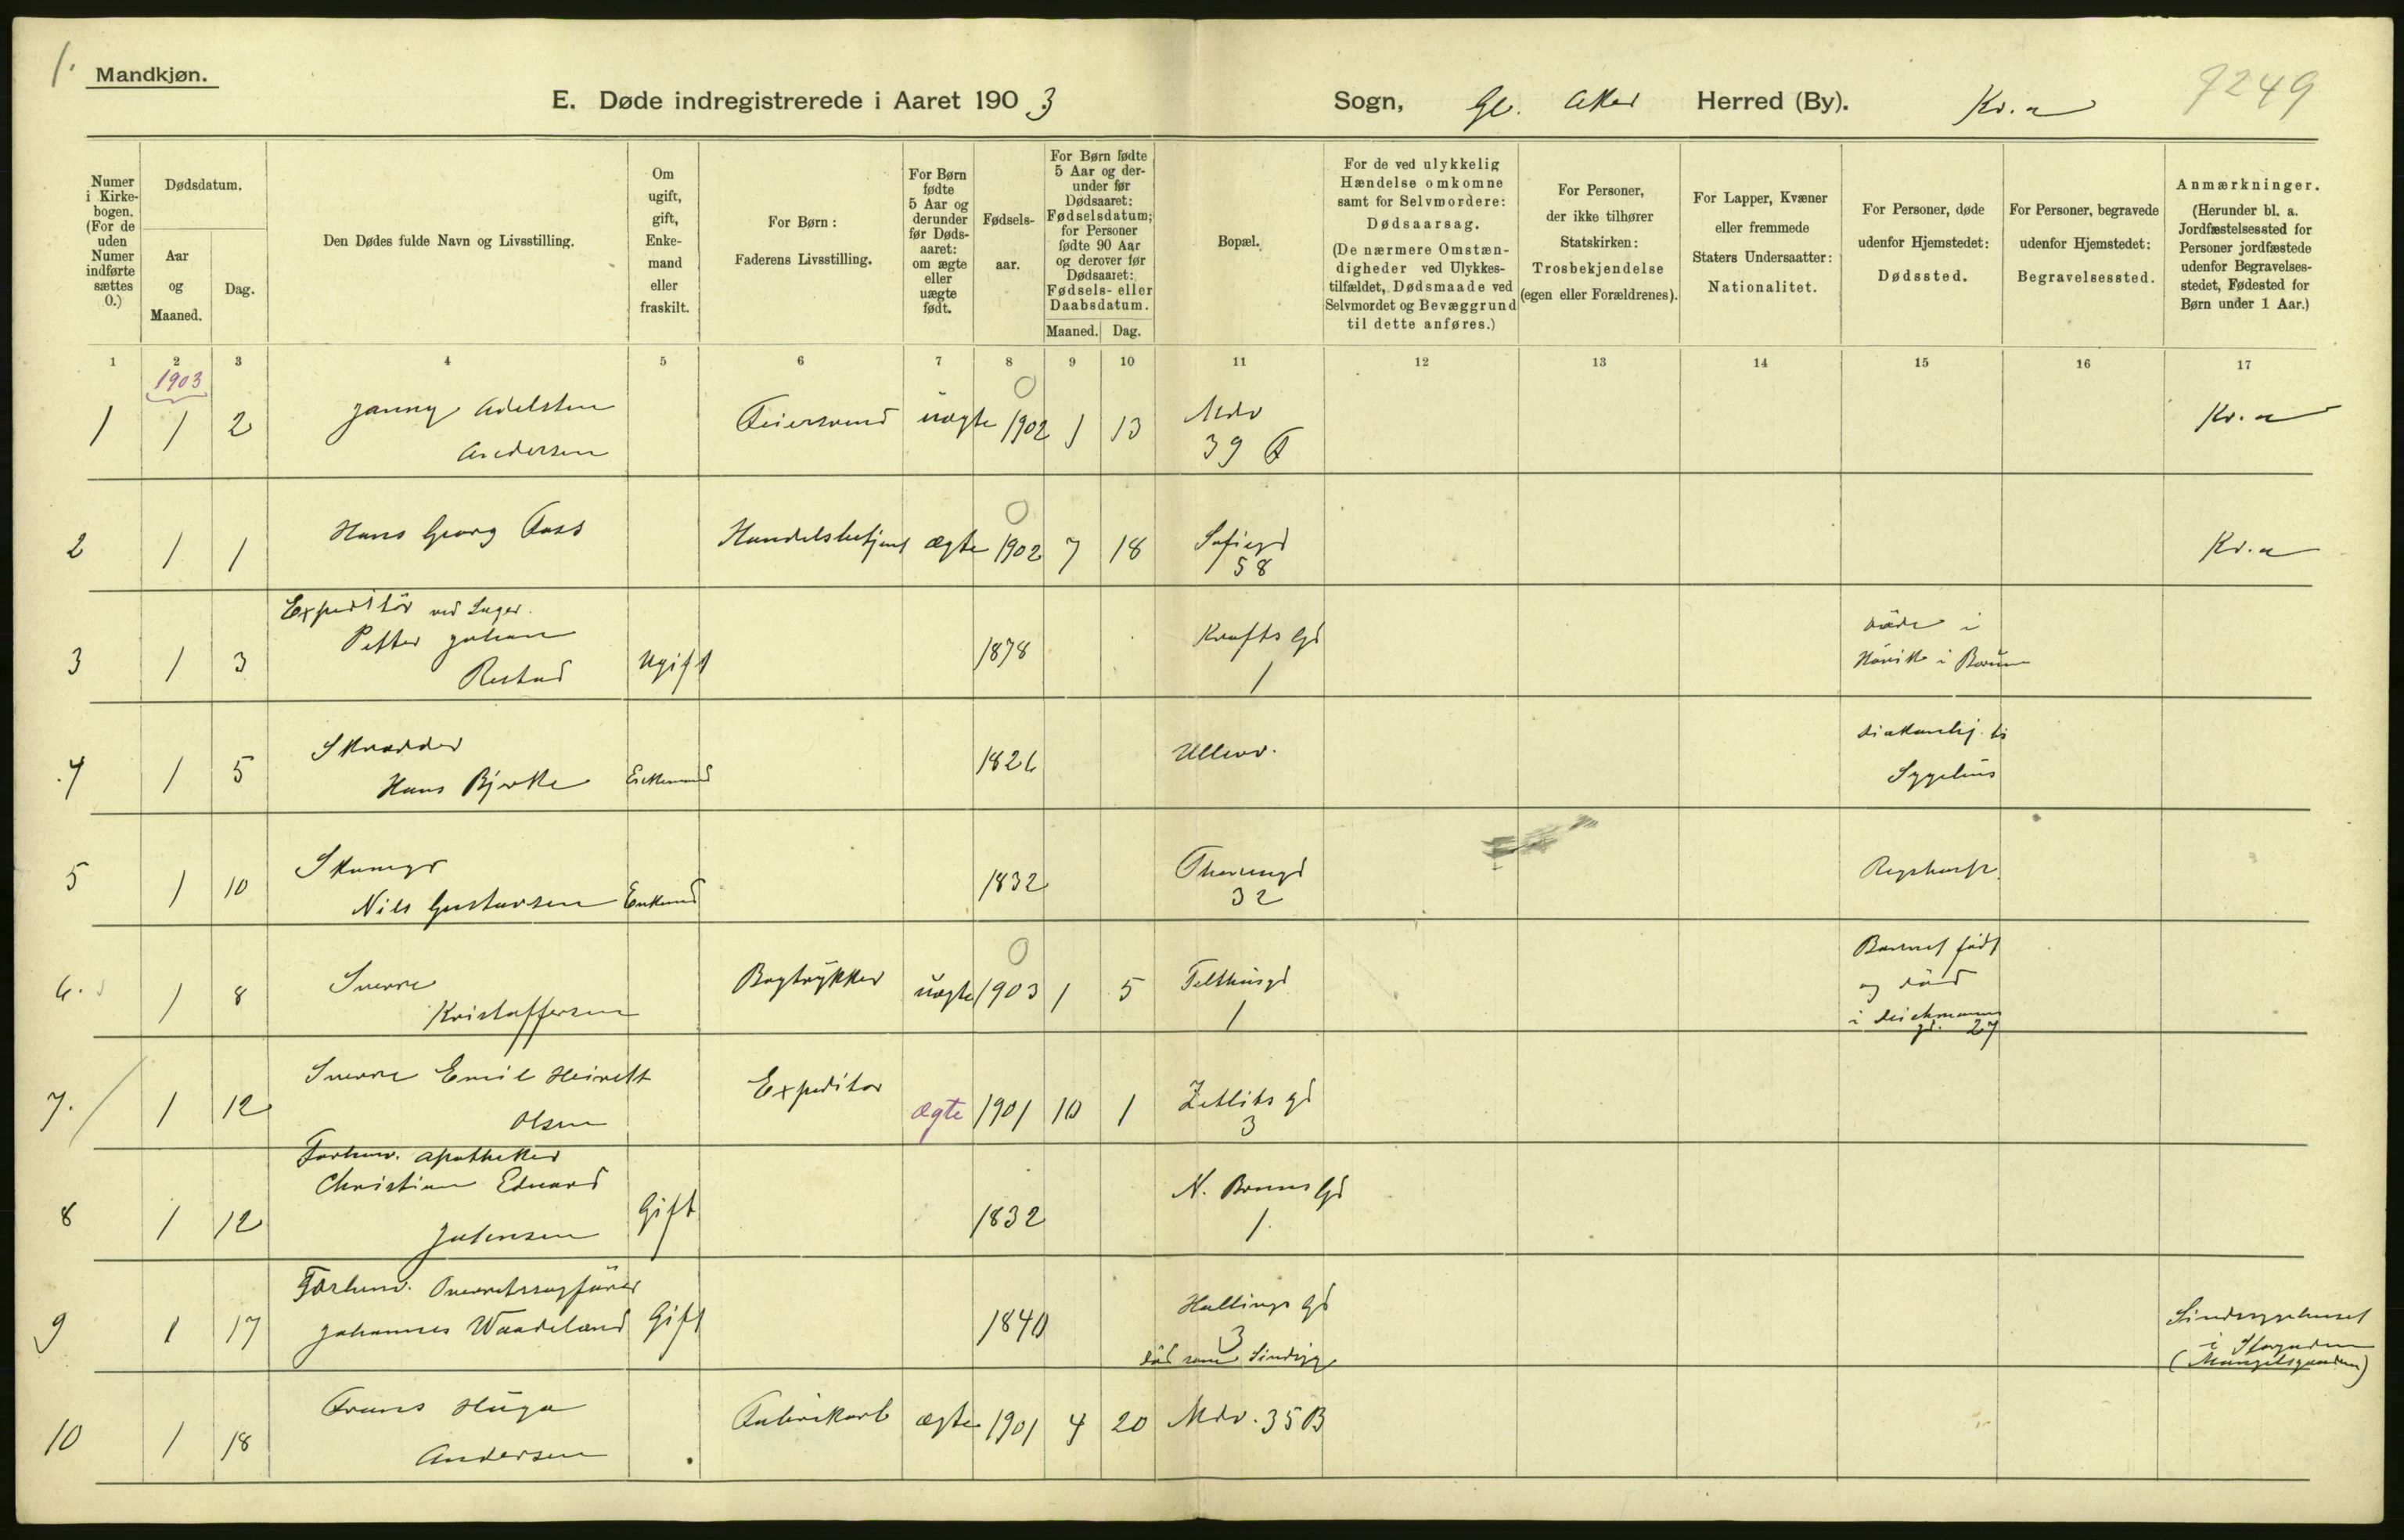 1.
Mandkjøn.
E. Døde indregistrerede i Aaret 1903
Sogn, Gl. Aker Herred (By). Kr.a
7249
Numer i Kirkebogen. (For de uden Numer indførte sættes 0.)
Dødsdatum.
Aar og Maaned.
Dag.
Den Dødes fulde Navn og Livsstilling.
Om ugift, gift, Enkemand eller fraskilt.
For Børn: Faderens Livsstilling.
For Børn fødte 5 Aar og derunder før Dødsaaret: om ægte eller uægte født.
Fødselsaar.
For Børn fødte 5 Aar og derunder før Dødsaaret: Fødselsdatum; for Personer fødte 90 Aar og derover før Dødsaaret: Fødsels- eller Daabsdatum.
Maaned. Dag.
Bopæl.
For de ved ulykkelig Hændelse omkomne samt for Selvmordere: Dødsaarsag.
(De nærmere Omstændigheder ved Ulykkestilfældet, Dødsmaade ved Selvmordet og Bevæggrund til dette anføres.)
For Personer, der ikke tilhører Statskirken: Trosbekjendelse (egen eller Forældrenes).
For Lapper, Kvæner eller fremmede Staters Undersaatter: Nationalitet.
For Personer, døde udenfor Hjemstedet: Dødssted.
For Personer, begravede udenfor Hjemstedet: Begravelsessted.
Anmærkninger.
(Herunder bl. a. Jordfæstelsessted for Personer jordfæstede udenfor Begravelsesstedet, Fødested for Børn under 1 Aar.)
1 2 3 4 5 6 7 8 9 10 11 12 13 14 15 16 17
1903
1 1 2 Janny Adelsten Andersen Feiersvend uægte 1902 1 13 Mdv 39 F Kr.a
2 1 1 Hans Georg Foss Handelsbetjent ægte 1902 7 18 Sofiegd 58 Kr.a
3 1 3 Expeditör ved Lager. Petter Johan Restad Ugift 1878 Krafts Gd 1 döde i Hövik i Bærum
4 1 5 Skrædder Hans Bjerke Enkemand 1826 Ullevv. Sygehus
5 1 10 Skomgr Nils Gustavsen Enkemd 1832 Theresegd 32 Rigshosp.
6. 1 8 Sverre Kristoffersen Bogtrykker uægte 1903 1 5 Telthusgd 1 Barnet födt og död i Deichmanns gd. 27
7. 1 12 Sverre Emil Olsen Expeditor ægte 1901 10 1 Zetlitz gd 3
8 1 12 Forhenv. Apotheker Christian Edvard Johnsen Gift 1832 N. Bruns Gd 1.
9 1 17 Forhenv. Overretssagförer Johannes Waadeland Gift 1840 Hallings Gd 3 död som Sindssyg Sindssygehuset i Storgaden (Mangelsgaarden)
10 1 18 Frans Hugo Andersen Fabrikarb ægte 1901 4 20 Mdv. 35 B